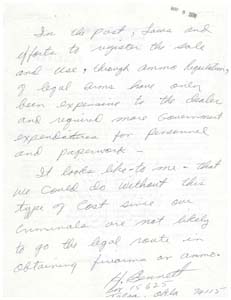 In the past, Laws and
efforts to register the sale
and use, through ammo Regulations,
of legal arms have only
been expensive to the dealer
and required more Government
expenditures for personnel
and paperwork —
It looks like - to me - that
we could do without this
type of cost since our
Criminals are not likely
to go the legal route in
obtaining firearms or ammo.
H. Bennett
Box 15625
Tulsa Okla 74115